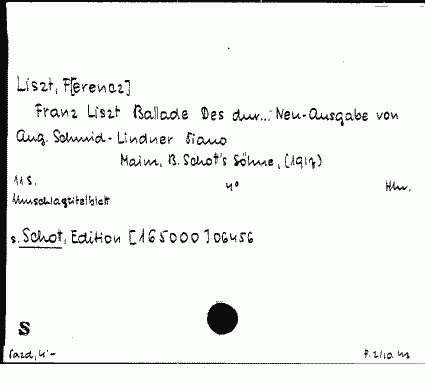 Liszt, F[erencz]
Franz Liszt Ballade Des dur... Neu-Ausgabe von
Aug. Schmid-Lindner Piano
Mainz, B. Schot's Söhne, (1917)
11 S. 4°
Umschlagtitelblatt
s. Schot, Edition [165000] 06456
S